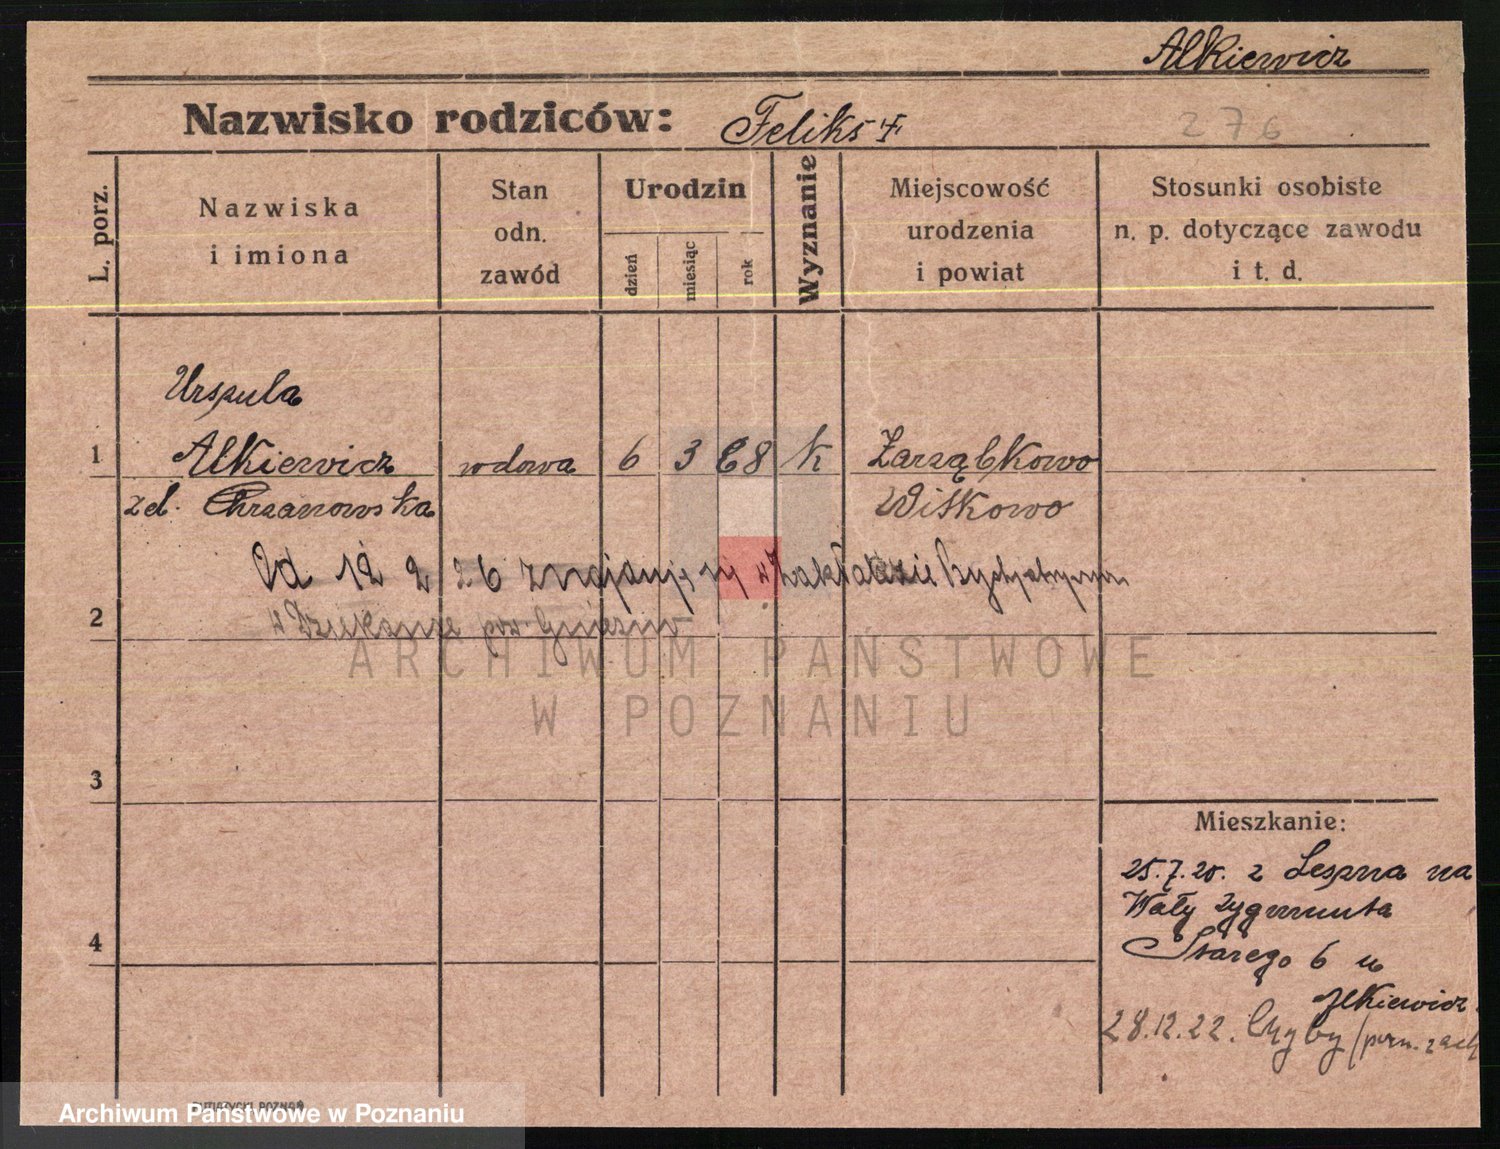 Alkiewicz
Nazwisko rodziców: Feliks
276
L. porz.
Nazwiska
i imiona
Stan
odn.
zawód
Urodzin
dzień
miesiąc
rok
Wyznanie
Miejscowość
urodzenia
i powiat
Stosunki osobiste
n. p. dotyczące zawodu
i t. d.
Urszula
1 Alkiewicz wdowa 6 3 68 k Zarząbkowo
zd. Chrzanowska Witkowo
Od 12 2 26 znajduje się w Zakładzie
2 w Dziekance pow. Gniezno
ARCHIWUM PAŃSTWOWE
W POZNANIU
3
Mieszkanie:
25.7.20. z Leszna na
Wały Zygmunta
4 Starego 6 u
Alkiewicz
28.12.22. Chyby (pozn. zach
PUTIATYCKI POZNAŃ
Archiwum Państwowe w Poznaniu